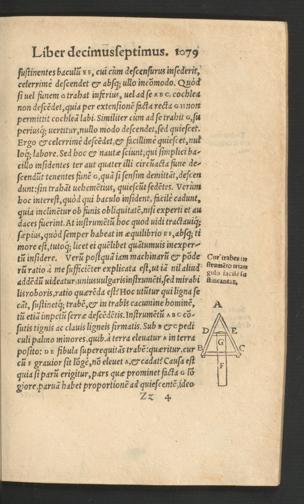 Liber decimusseptimus. 1079
sustinentes baculũ E F, cui cùm descensurus insederit,
celerrimè descendet & absq; ullo incõmodo. Quòd
si uel funem G trahat inferius, uel ad se A B C. cochlea
non descẽdet, quia per extensionẽ facta recta G H non
permittit cochleã labi. Similiter cùm ad se trahit G, su
periusq; uertitur, nullo modo descendet, sed quiescet.
Ergo & celerrimè descẽdet, & facillimè quiescet, nul
loq; labore. Sed hoc & nautæ sciunt, qui simplici ba-
cillo insidentes ter aut quater illi circũacta fune de-
scendũt tenentes funẽ G, quã si sensim demittãt, descen
dunt: sin trahãt uehemẽtius, quiescũt sedẽtes. Verùm
hoc interest, quòd qui baculo insident, facilè cadunt,
quia inclinetur ob funis obliquitatẽ, nisi experti et au
daces fuerint. At instrumẽtũ hoc quod uidi tractauiq;
sæpius, quòd semper habeat in æquilibrio E F, absq; ti
more est, tutoq; licet ei quẽlibet quãtumuis inexper-
tũ insidere. Verũ postquã iam machinarũ & põde
rũ ratio à me sufficiẽter explicata est, ut iã nil aliud
addẽdũ uideatur: unius uulgaris instrumẽti, sed mirabi
lis roboris, ratio quærẽda est: Hoc utũtur qui ligna se
cãt, sustinẽtq; trabẽ, & in trabis cacumine hominẽ,
tũ etiã impetũ serræ descẽdẽtis. Instrumẽtũ A B C cõ-
sutis tignis ac clauis ligneis firmatis. Sub B & C pedi
culi palmo minores, quib. à terra eleuatur A in terra
posito: D E fibula superequitãs trabẽ: quæritur, cur
cũ F grauior sit lõgè, nõ eleuet A, & cadat? Causa est
quia si parũ erigitur, pars quæ prominet facta G lõ
gior e, paruã habet proportionẽ ad quiescentẽ, ideo
Zz 4
Cur trabem in
strumẽto trian
gulo faciẽ su
stineantur.
A
D E
G
B C
F